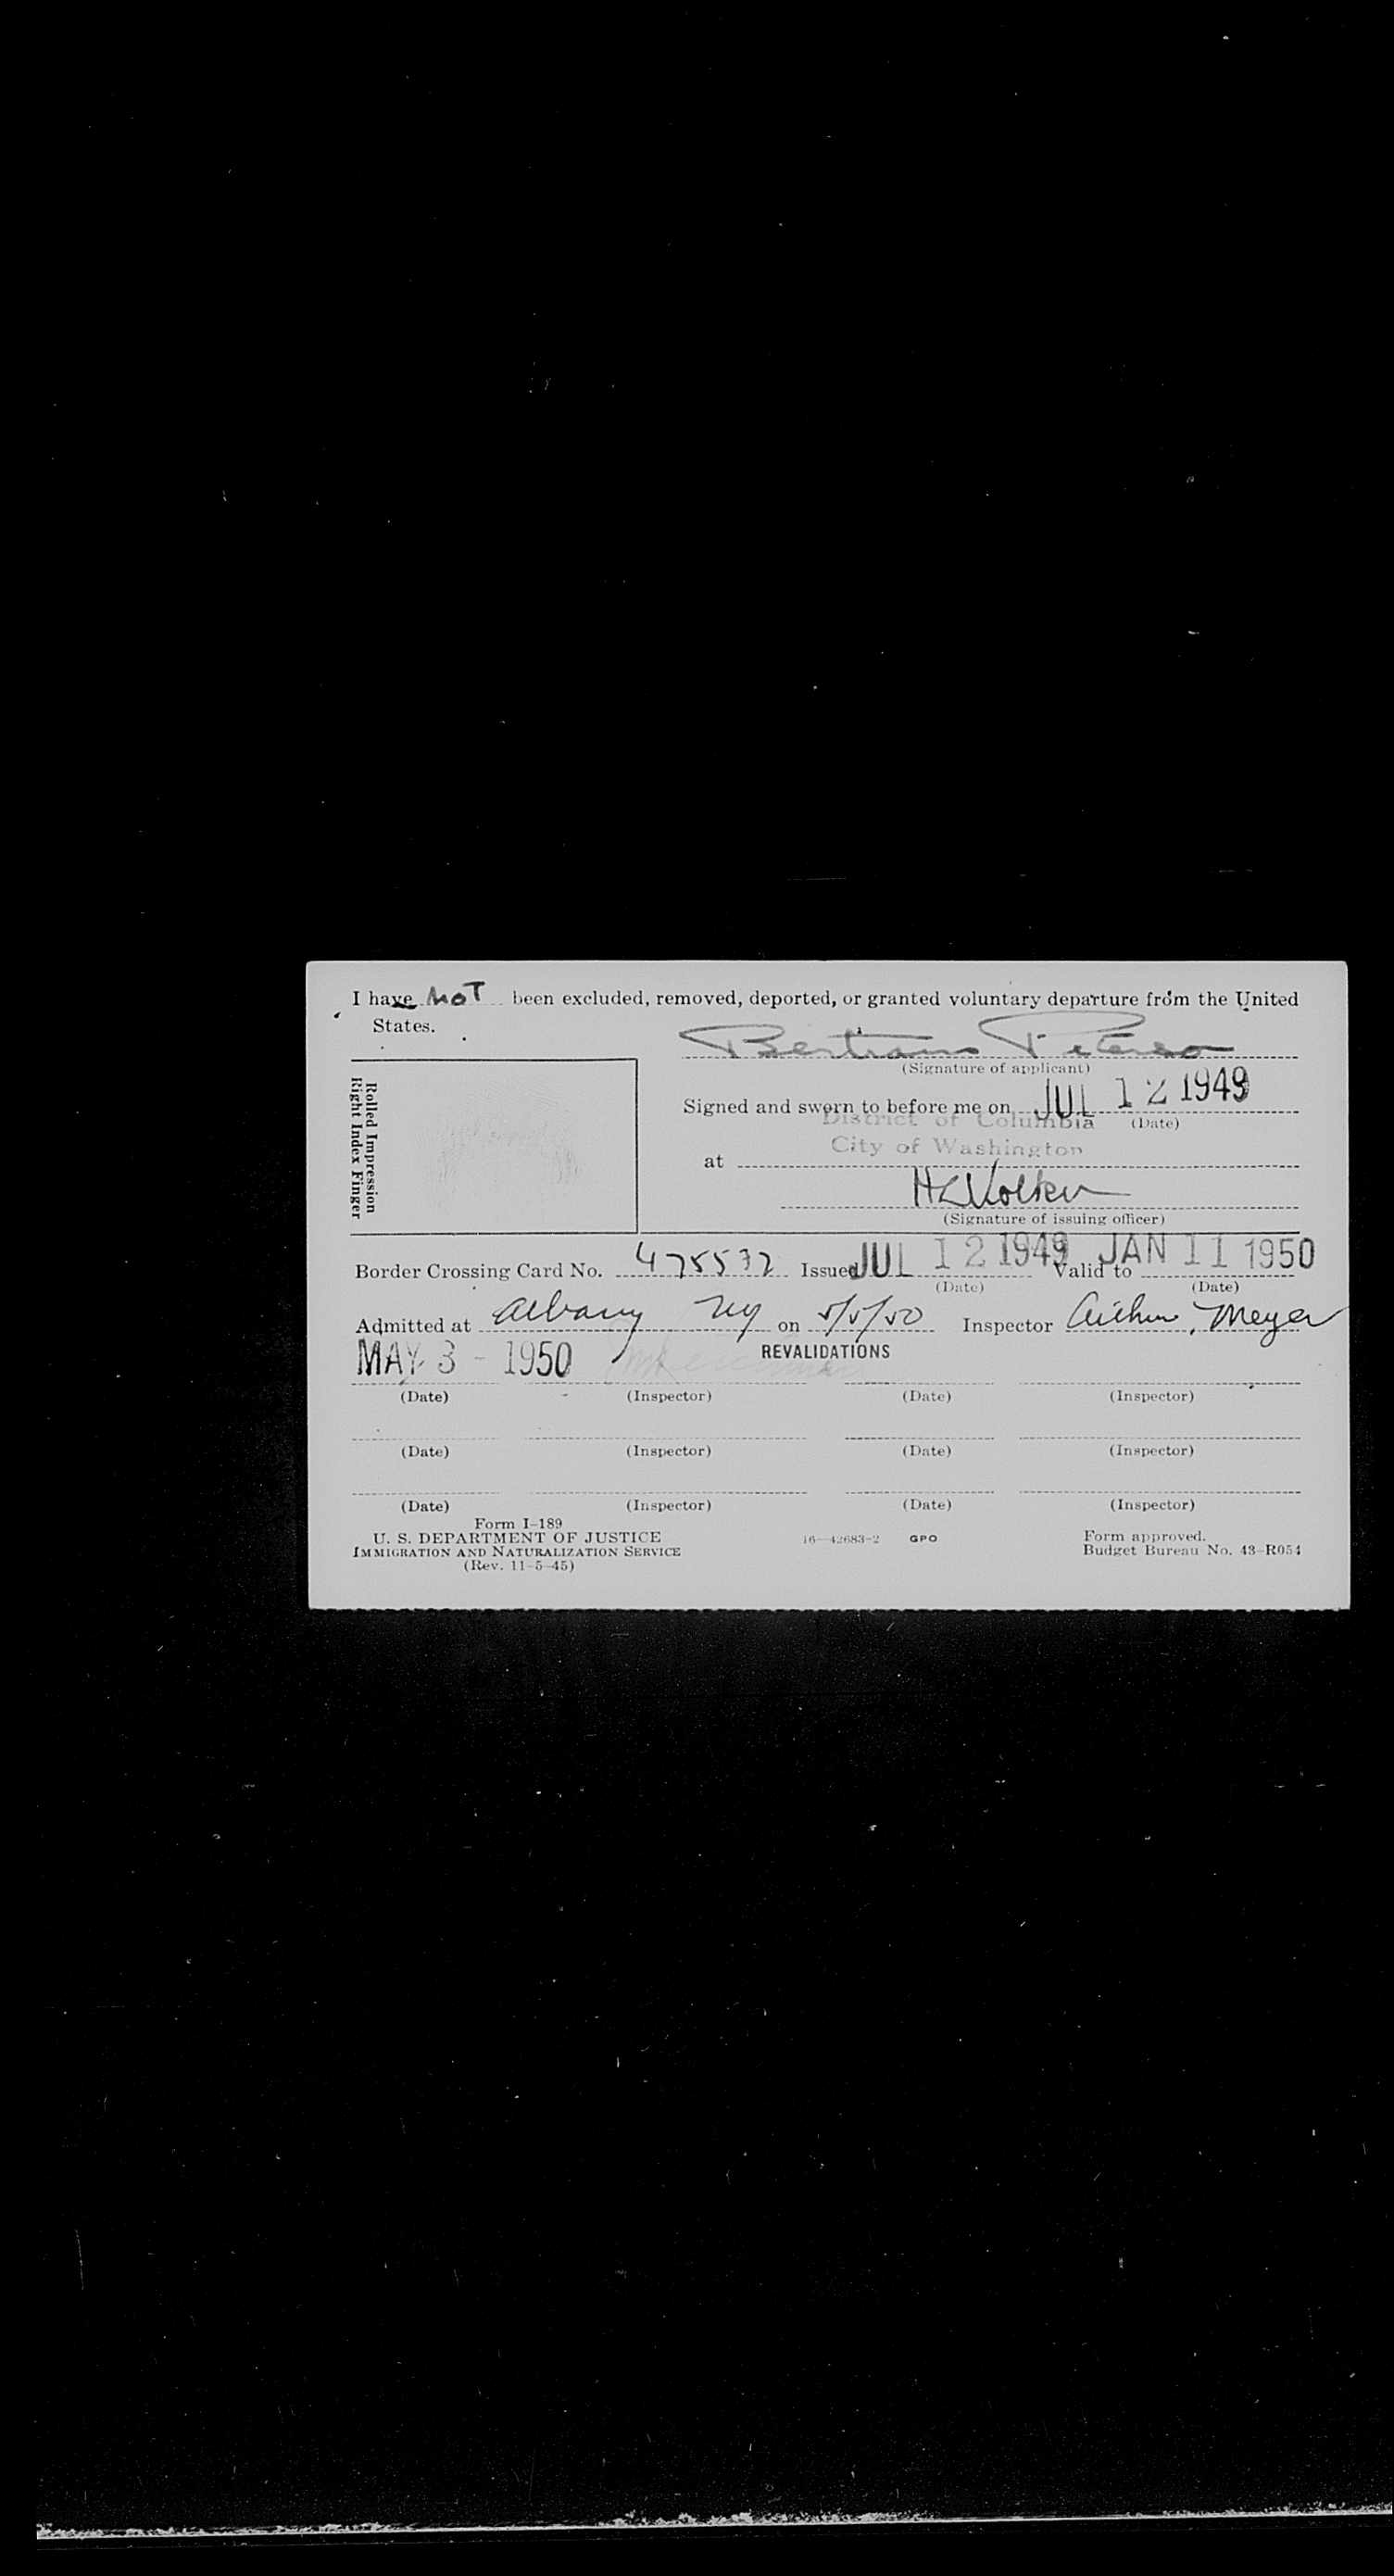 I have NOT been excluded, removed, deported, or granted voluntary departure from the United
States.
Bertram
(Signature of applicant)
Rolled Impression
Right Index Finger
Signed and sworn to before me on JUL 12 1949
(Date)
District of Columbia
at City of Washington
(Signature of issuing officer)
Border Crossing Card No. Issued JUL 12 1949 Valid to JAN 11 1950
(Date) (Date)
Admitted at Albany NY on 5/5/50 Inspector Meyer
REVALIDATIONS
MAY 3 - 1950
(Date) (Inspector) (Date) (Inspector)
(Date) (Inspector) (Date) (Inspector)
(Date) (Inspector) (Date) (Inspector)
Form I-189
U. S. DEPARTMENT OF JUSTICE
IMMIGRATION AND NATURALIZATION SERVICE
(Rev. 11-5-45)
16—42683-2 GPO
Form approved.
Budget Bureau No. 43-R054